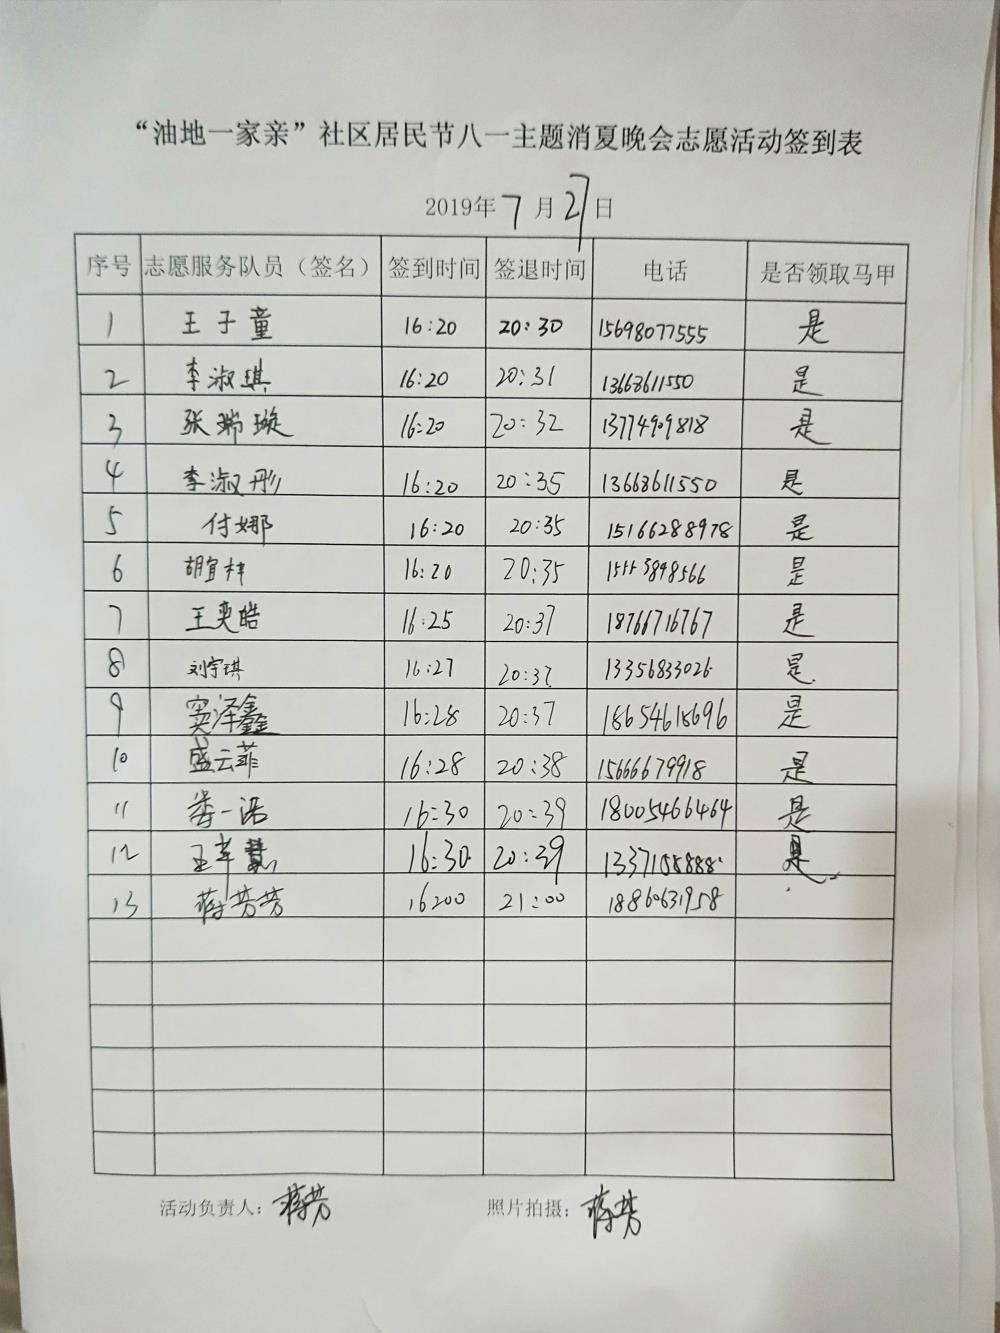 “油地一家亲”社区居民节八一主题消夏晚会志愿活动签到表
2019年7月27日
序号 志愿服务队员（签名） 签到时间 签退时间 电话 是否领取马甲
1 王子童 16:20 20:30 15698077555 是
2 李淑琪 16:20 20:31 13663611550 是
3 张瑞璇 16:20 20:32 13774909818 是
4 李淑彤 16:20 20:35 13663611550 是
5 付娜 16:20 20:35 15166288978 是
6 胡宜梓 16:20 20:35 15555898566 是
7 王奕皓 16:25 20:37 18766716767 是
8 刘宇琪 16:27 20:37 13356833026 是
9 窦泽鑫 16:28 20:37 18654618696 是
10 盛云菲 16:28 20:38 15666679918 是
11 娄一诺 16:30 20:39 18005466464 是
12 王芊慧 16:30 20:39 是
13 蒋芳芳 16:00 21:00 18860631958
活动负责人：蒋芳 照片拍摄：蒋芳